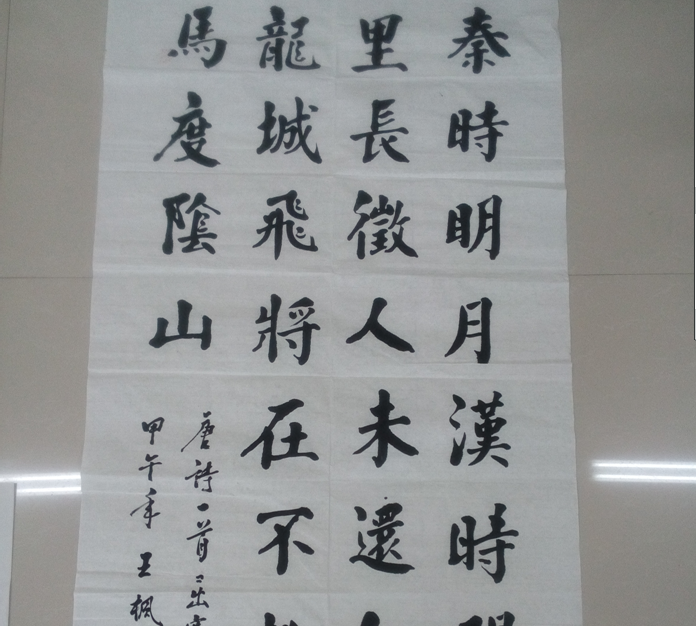 秦時明月漢時
里長徵人未還
龍城飛將在不
馬度陰山
唐詩一首出
甲午年王楓